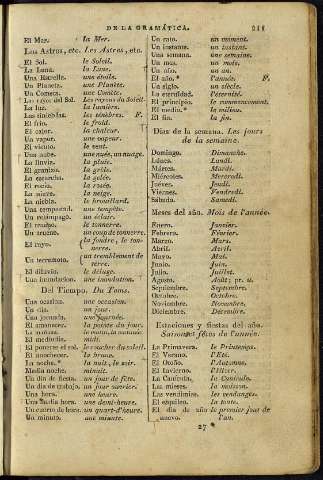 DE LA GRAMÁTICA. 211
El Mar. la Mer.
Los Astros, etc. Les Astros, etc.
El Sol. le Soleil.
La Luna. la Lune.
Una Estrella. une étoile.
Un Planeta. une Planète.
Un Cometa. une Comète.
Los rayos del Sol. Les rayons du soleil
La luz. la lumière.
Las tinieblas. les ténèbres. F.
El frio. le froid.
El calor. la chaleur.
Un vapor. une vapeur.
El viento. le vent.
Una nube. une nuée, un nuage.
La lluvia. la pluie.
El granizo. la grêle.
La escarcha. la gelée.
El rocío. la rosée.
La nieve. la neige.
La niebla. le brouillard.
Una tempestad. une tempête.
Un relámpago. un éclair.
El trueno. le tonnerre.
Un trueno. un coup de tonnerre.
El rayo. la foudre, le tonnerre.
Un terremoto. un tremblement de terre.
El diluvio. le déluge.
Una inundacion. une inondation.
Del Tiempo. Du Tems.
Una ocasion. une occasion.
Un dia. un jour.
Una jornada. une journée.
El amanecer. la pointe du jour.
La mañana. le matin, la matinée
El mediodia. midi.
El ponerse el sol. le coucher du soleil.
El anochecer. la brune.
La noche. la nuit, le soir.
Media noche. minuit.
Un dia de fiesta. un jour de fête.
Un dia de trabajo. un jour ouvrier.
Una hora. une heure.
Una media hora. une demi-heure.
Un cuarto de hora. un quart-d'heure.
Un minuto. une minute.
Un rato. un moment.
Un instante. un instant.
Una semana. une semaine.
Un mes. un mois.
Un año. un an.
El año. l'année. F.
Un siglo. un siècle.
La eternidad. l'éternité.
El principio. le commencement.
El medio. le milieu.
El fin. la fin.
Dias de la semana. Les jours
de la semaine.
Domingo. Dimanche.
Lúnes. Lundi.
Mártes. Mardi.
Miércoles. Mercredi.
Juéves. Jeudi.
Viérnes. Vendredi.
Sábado. Samedi.
Meses del año. Mois de l'année.
Enero. Janvier.
Febrero. Février.
Marzo. Mars.
Abril. Avril.
Mayo. Mai.
Junio. Juin.
Julio. Juillet.
Agosto. Août;
Septiembre. Septembre.
Octubre. Octobre.
Noviembre. Novembre.
Diciembre. Décembre.
Estaciones y fiestas del año.
Saisons et fêtes de l'année.
La Primavera. le Printemps.
El Verano. l'Été.
El Otoño. l'Automne.
El Invierno. l'Hiver.
La Canícula. la Canicule.
Las mieses. la moisson.
Las vendimias. les vendanges.
El esquileo. la tonte.
El dia de año nuevo. le premier jour de l'an.
27 *